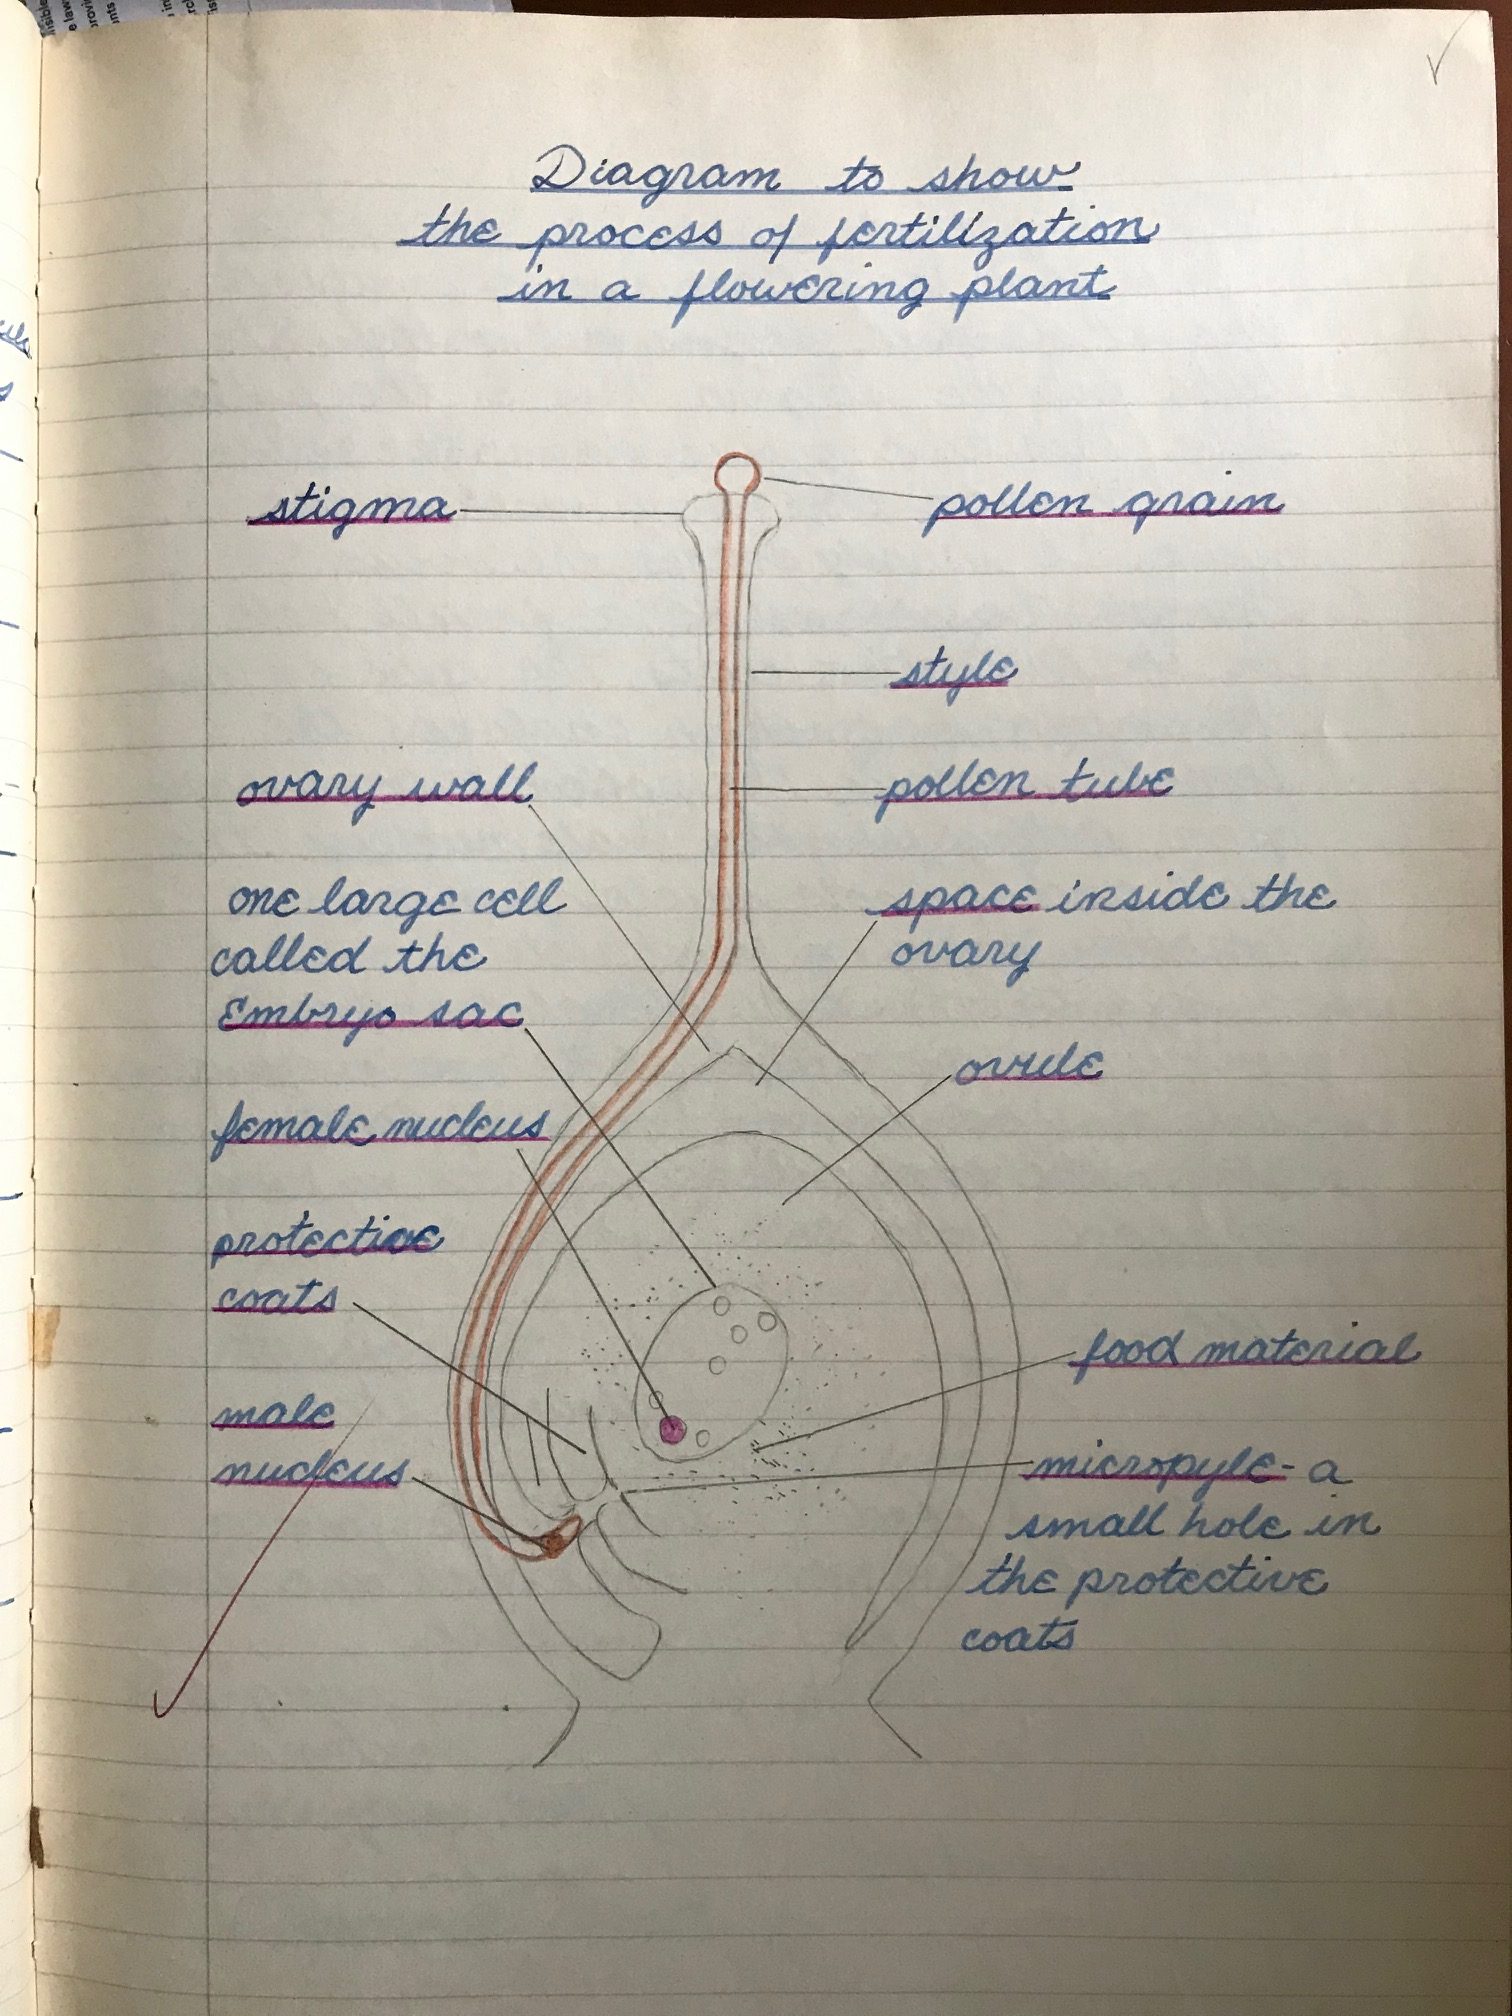 Diagram to show
the process of fertilization
in a flowering plant
stigma
pollen grain
style
ovary wall
pollen tube
one large cell
called the
Embryo sac
space inside the
ovary
ovule
female nucleus
protective
coats
food material
male
nucleus
micropyle - a
small hole in
the protective
coats